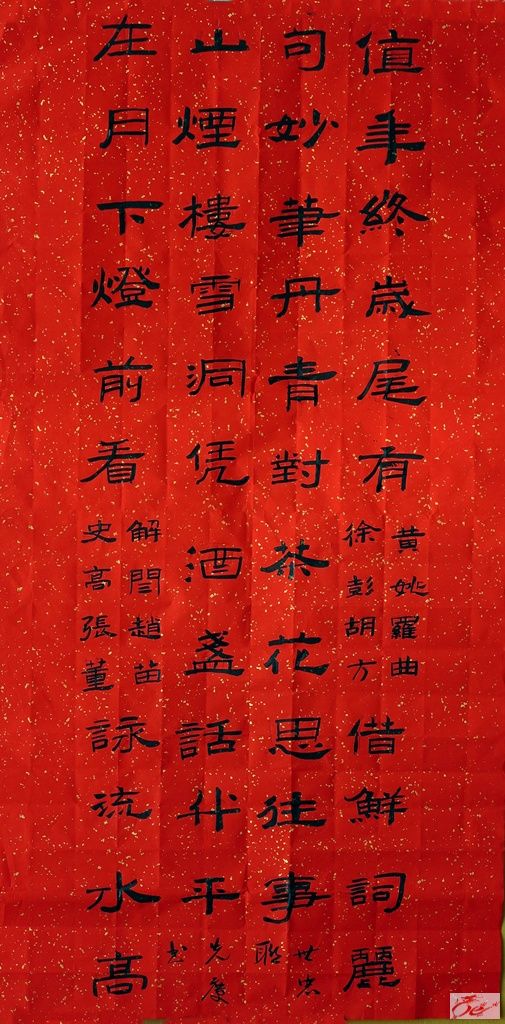 值年終歲尾有
黄姚羅曲
徐彭胡方
借鮮詞麗
句妙筆丹青對茶花思往事
世忠
聯
在月下燈前看
解閆趙苗
史高張董
詠流水高
山煙樓雪洞凭酒盞話升平
书